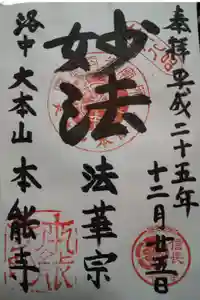 奉拝 平成二十五年
十二月廿五日
妙法
法華宗
洛中 大本山 本能寺
信長